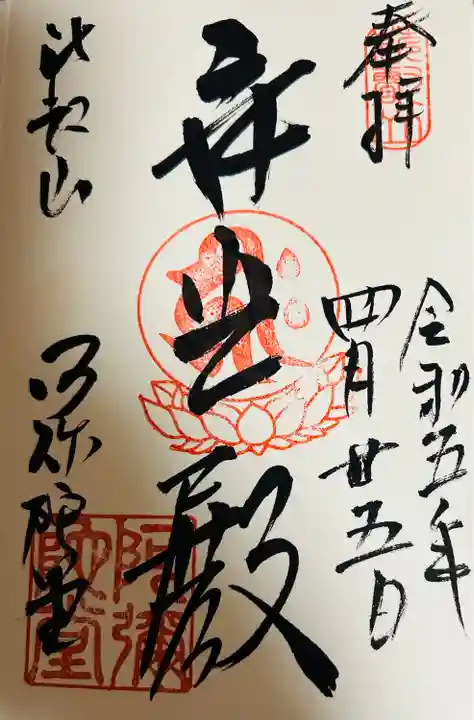 奉拝
比叡山
令和五年
四月廿五日
殿
比叡山
阿弥陀堂
阿彌
陀堂